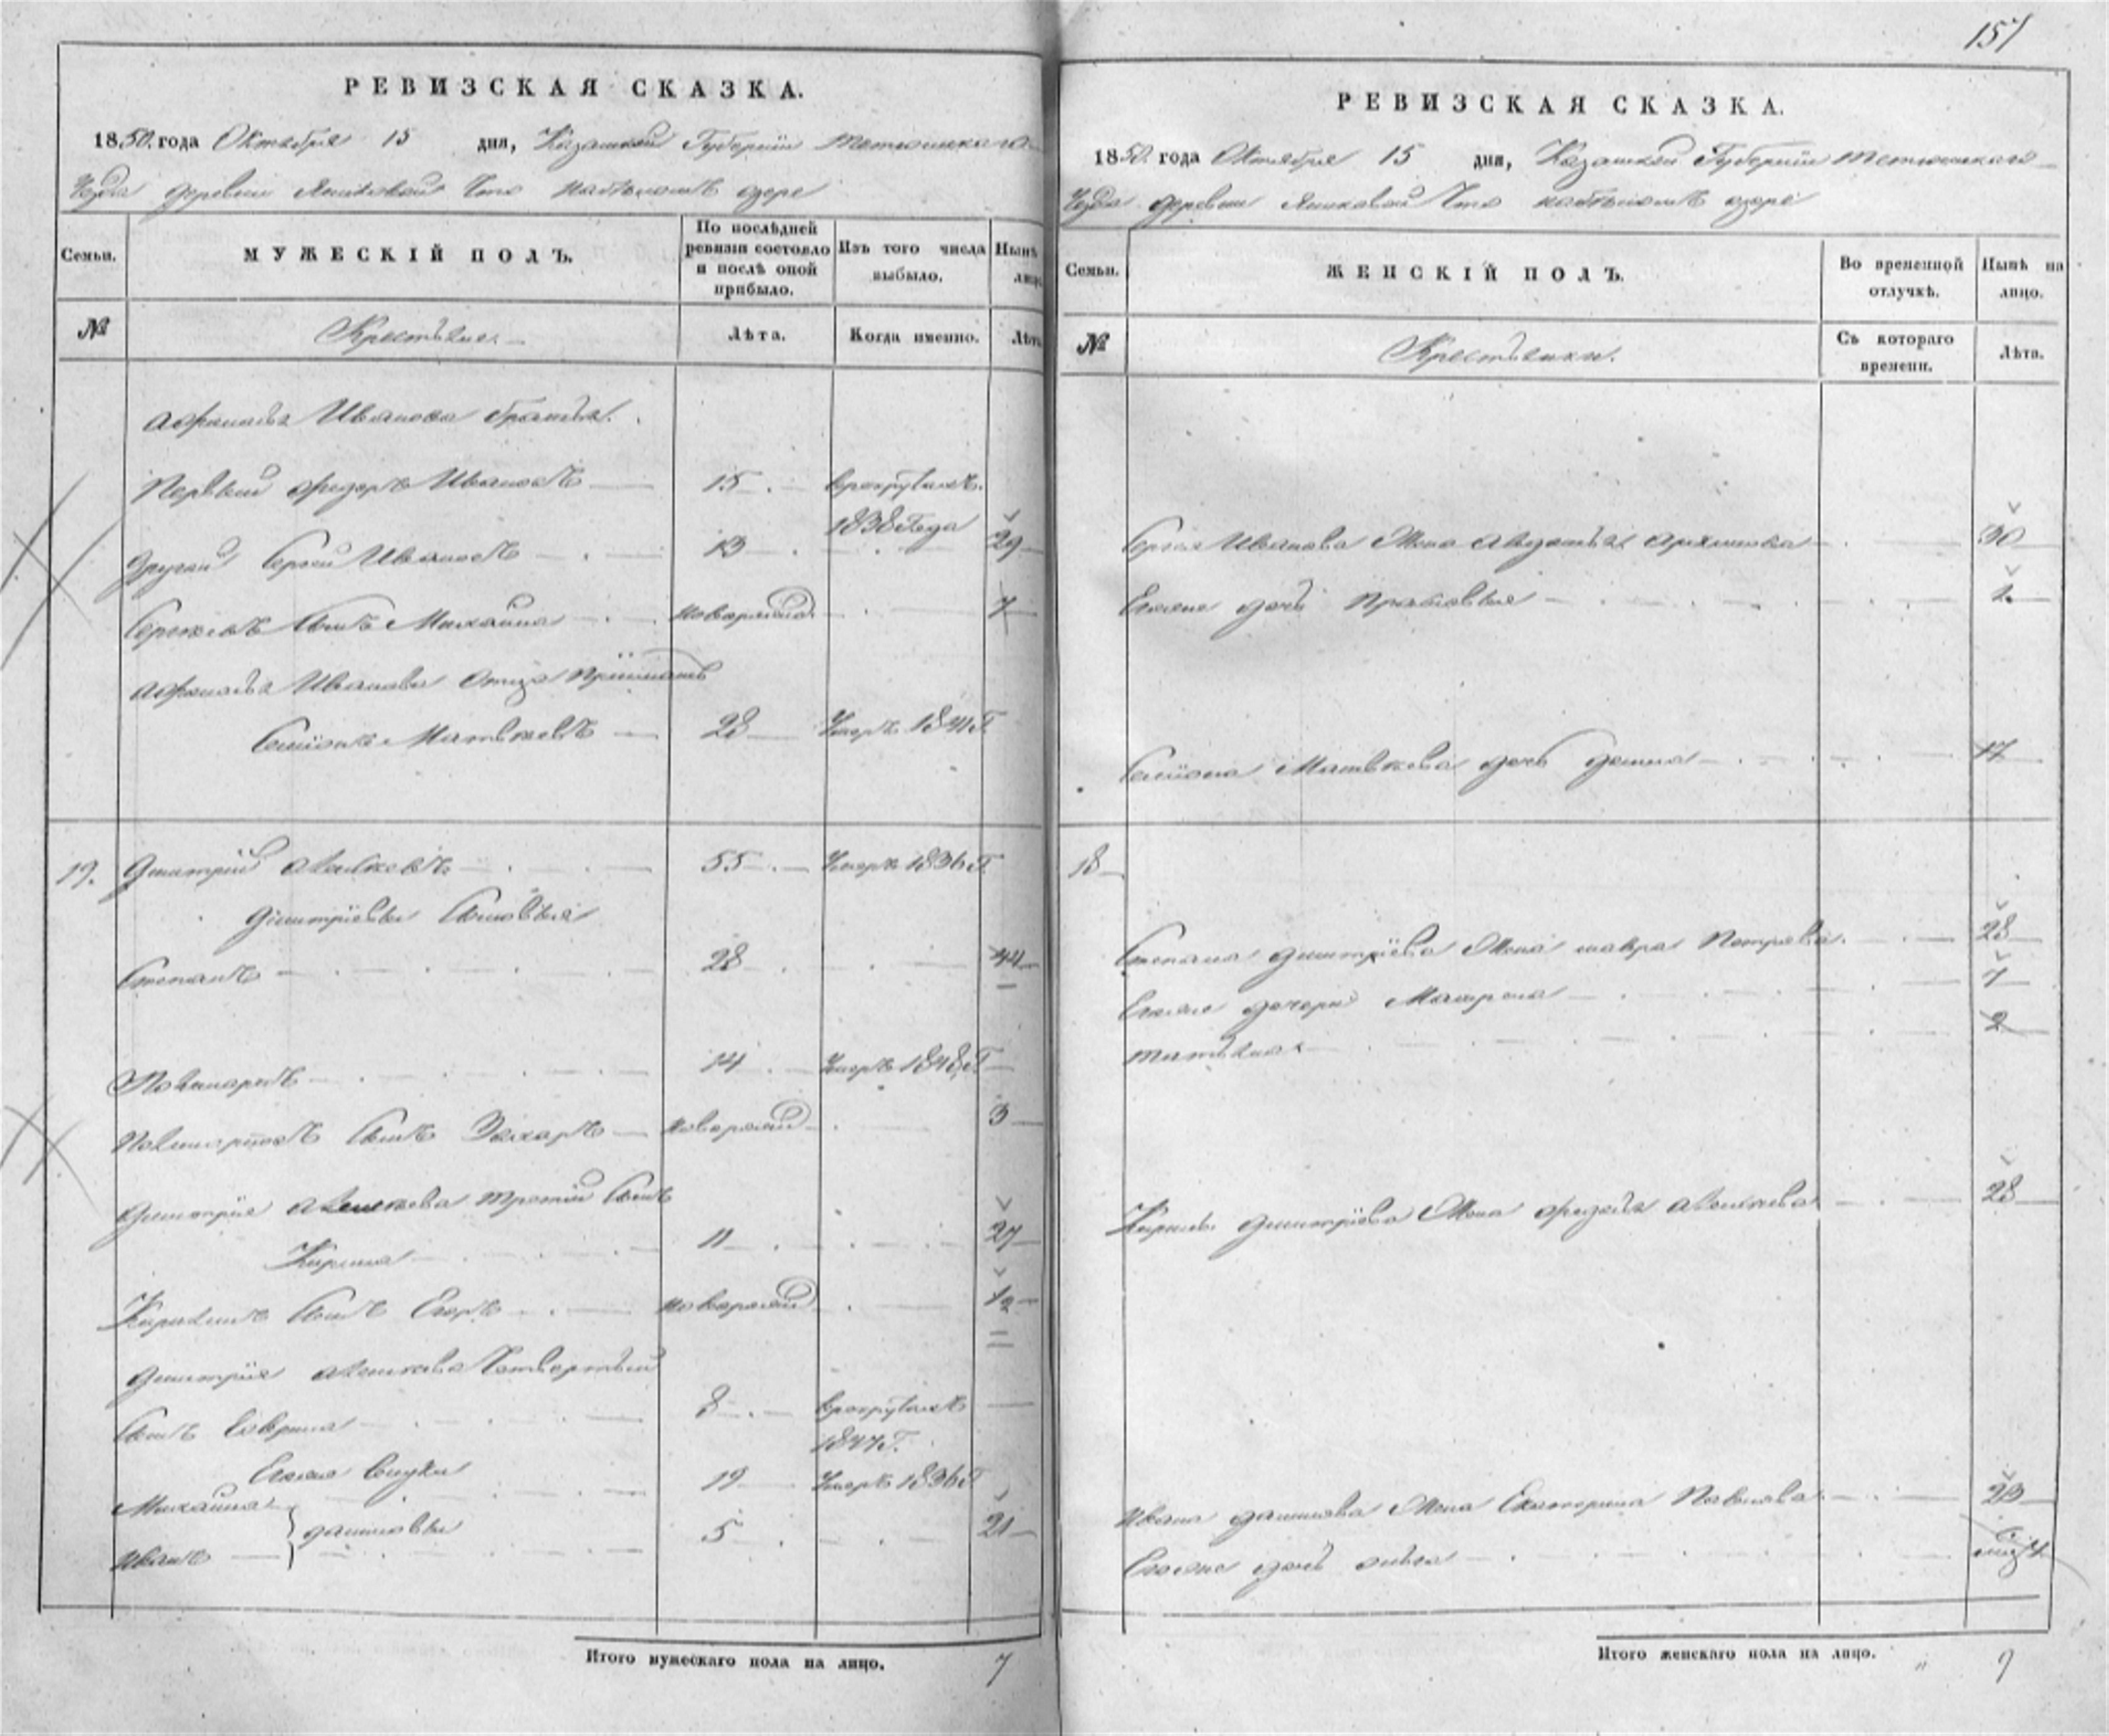 157
РЕВИЗСКАЯ СКАЗКА.
1850. года Октября 15 дня, Казанской Губернiи Тетюшскаго
Уезда деревни Яшковой Что озере
Семьи. МУЖЕСКIЙ ПОЛЪ. По послѣдней ревизiи состояло и послѣ оной прибыло. Изъ того числа выбыло. Нынѣ лицо
№ Крестьяне. Лѣта. Когда именно. Лѣта
Афанасья Иванова братья.
Первый Федоръ Ивановъ 15 врекрутахъ.
1838 Года
Другой Сергей Ивановъ 13 29
Сергеевъ Сынъ Михайла новорожд. 7
Афанасья Иванова Отца Прiимашъ
Семiонъ Матвеевъ 28 Умеръ 1841 Г.
19. Дмитрiй 55 Умеръ 1836 Г.
Дмитрiевы Сыновья
Степанъ 28 44
14 Умеръ 1848 Г.
Сынъ Захаръ новорожд 3
Дмитрiя третiй Сынъ
Кирила 11 27
Кирилинъ Сынъ Егоръ новорожд 12
Дмитрiя Четвертый
Сынъ Гаврила 8 врекрутахъ
1847 Г.
Егоже внуки
Михайла 19 Умеръ 1836 Г.
Даниловы
Иванъ 5 21
Итого мужескаго пола на лицо. 7
РЕВИЗСКАЯ СКАЗКА.
1850. года Октября 15 дня, Казанской Губернiи Тетюшскаго
Уезда деревни Яшковой Что озере
Семьи. ЖЕНСКIЙ ПОЛЪ. Во временной отлучкѣ. Нынѣ на лицо.
№ Крестьянки. Съ котораго времени. Лѣта.
Сергея Иванова Жена Авдотья Архипова 30
Егоже дочь Прасковья
Семiона Матвеева дочь 17
18
Степана Дмитрiева Жена Мавра Петрова. 28
Егоже дочери Матрена 7
Татьяна 2
Кирилы Дмитрiева Жена Федосья 28
Ивана Данилова Жена Екатерина Павлова 23
Егоже дочь
Итого женскаго пола на лицо. 9